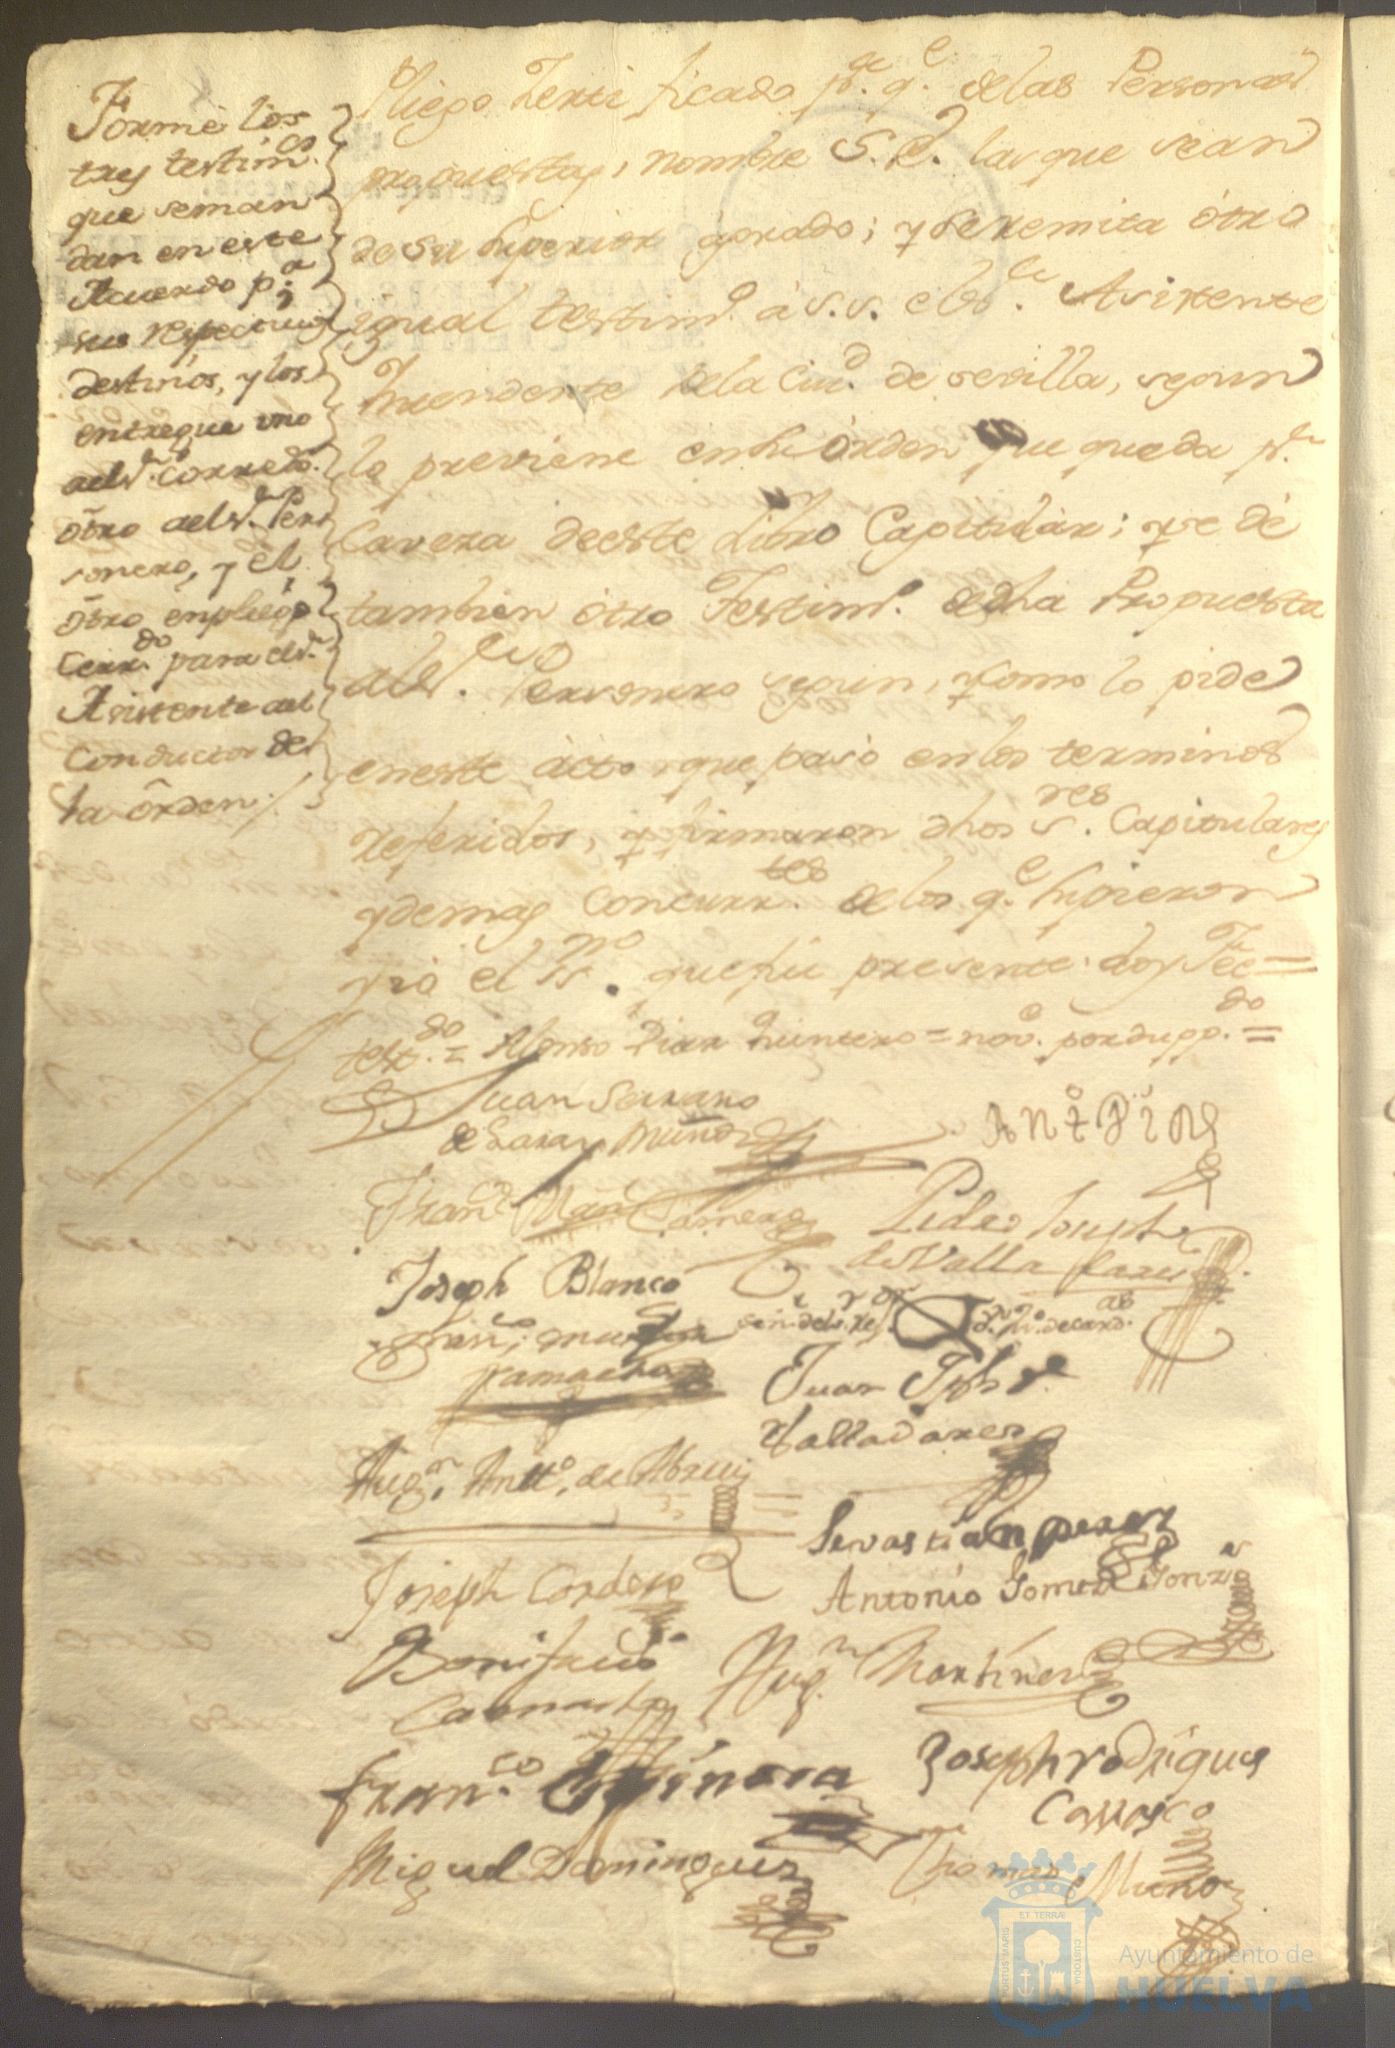 Formé los
tres testim.os
que se man
dan en este
Acuerdo p.a
sus respectivos
destinos, y los
entregue uno
al S.r Corred.r
ótro al S.r Per
sonero, y el
ótro en pliego
Cerr.do para el S.r
Asistente al
Conductor de
la órden.
Pliego Zerti ficado p.a q.e de las Personas
propuestas, nombre S. E. las que sean
de su Superior agrado; y se remita ótro
igual testim.o á S.S. el S.r Asistente
Intendente de la Ciu.d de Sevilla, segun
lo previene en su órden que queda p.r
Caveza de este Libro Capitular; y se dé
tambien ótro Testim.o de dha Propuesta
al S.r Personero segun, y como lo pide
en este ácto, que pasó en los terminos
referidos, y firmaron dhos S.res Capitulares
y demas Concurr.tes de los q.e supieron
y yo el Ss.no que fui presente doy Fee=
test.do = Alonso Diaz Quintero = no v.e por dupp.do =
Juan Serrano
de Lara y Muñoz
Fran.co Mar.n Camero
Pedro Joseph
de Valladares
Joseph Blanco
Fran.co Martin
Camacho
Juan Jph
Valladares
Aug.n Antt.o de Abreu
Sevastian perez
Joseph Cordero
Antonio Gomez Gonz.s
Bonifacio
Camacho
Aug.n Martinez
Fran.co Espinosa
Joseph rodrigues
Carrasco
Miguel Dominguez
Thomas Muño
PORTUS MARIS
ET TERRÆ
CUSTODIA
Ayuntamiento de
HUELVA